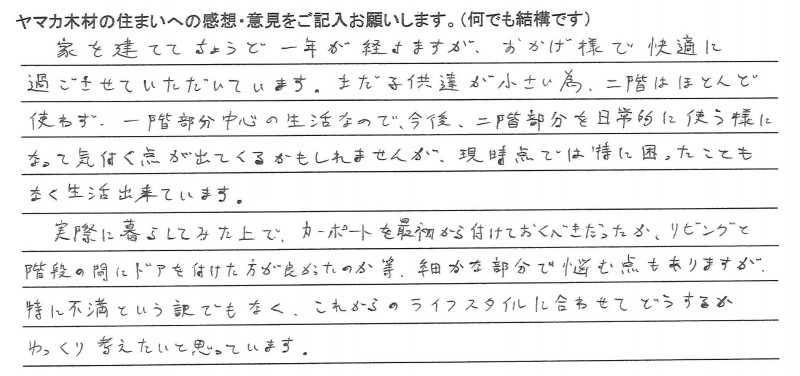 ヤマカ木材の住まいへの感想・意見をご記入お願いします。(何でも結構です)
家を建ててちょうど一年が経ますが、おかげ様で快適に
過ごさせていただいています。まだ子供達が小さい為、二階はほとんど
使わず、一階部分中心の生活なので、今後、二階部分を日常的に使う様に
なって気付く点が出てくるかもしれませんが、現時点では特に困ったことも
なく生活出来ています。
実際に暮らしてみた上で、カーポートを最初から付けておくべきだったか、リビングと
階段の間にドアを付けた方が良かったのか等、細かな部分で悩む点もありますが、
特に不満という訳でもなく、これからのライフスタイルに合わせてどうするか
ゆっくり考えたいと思っています。